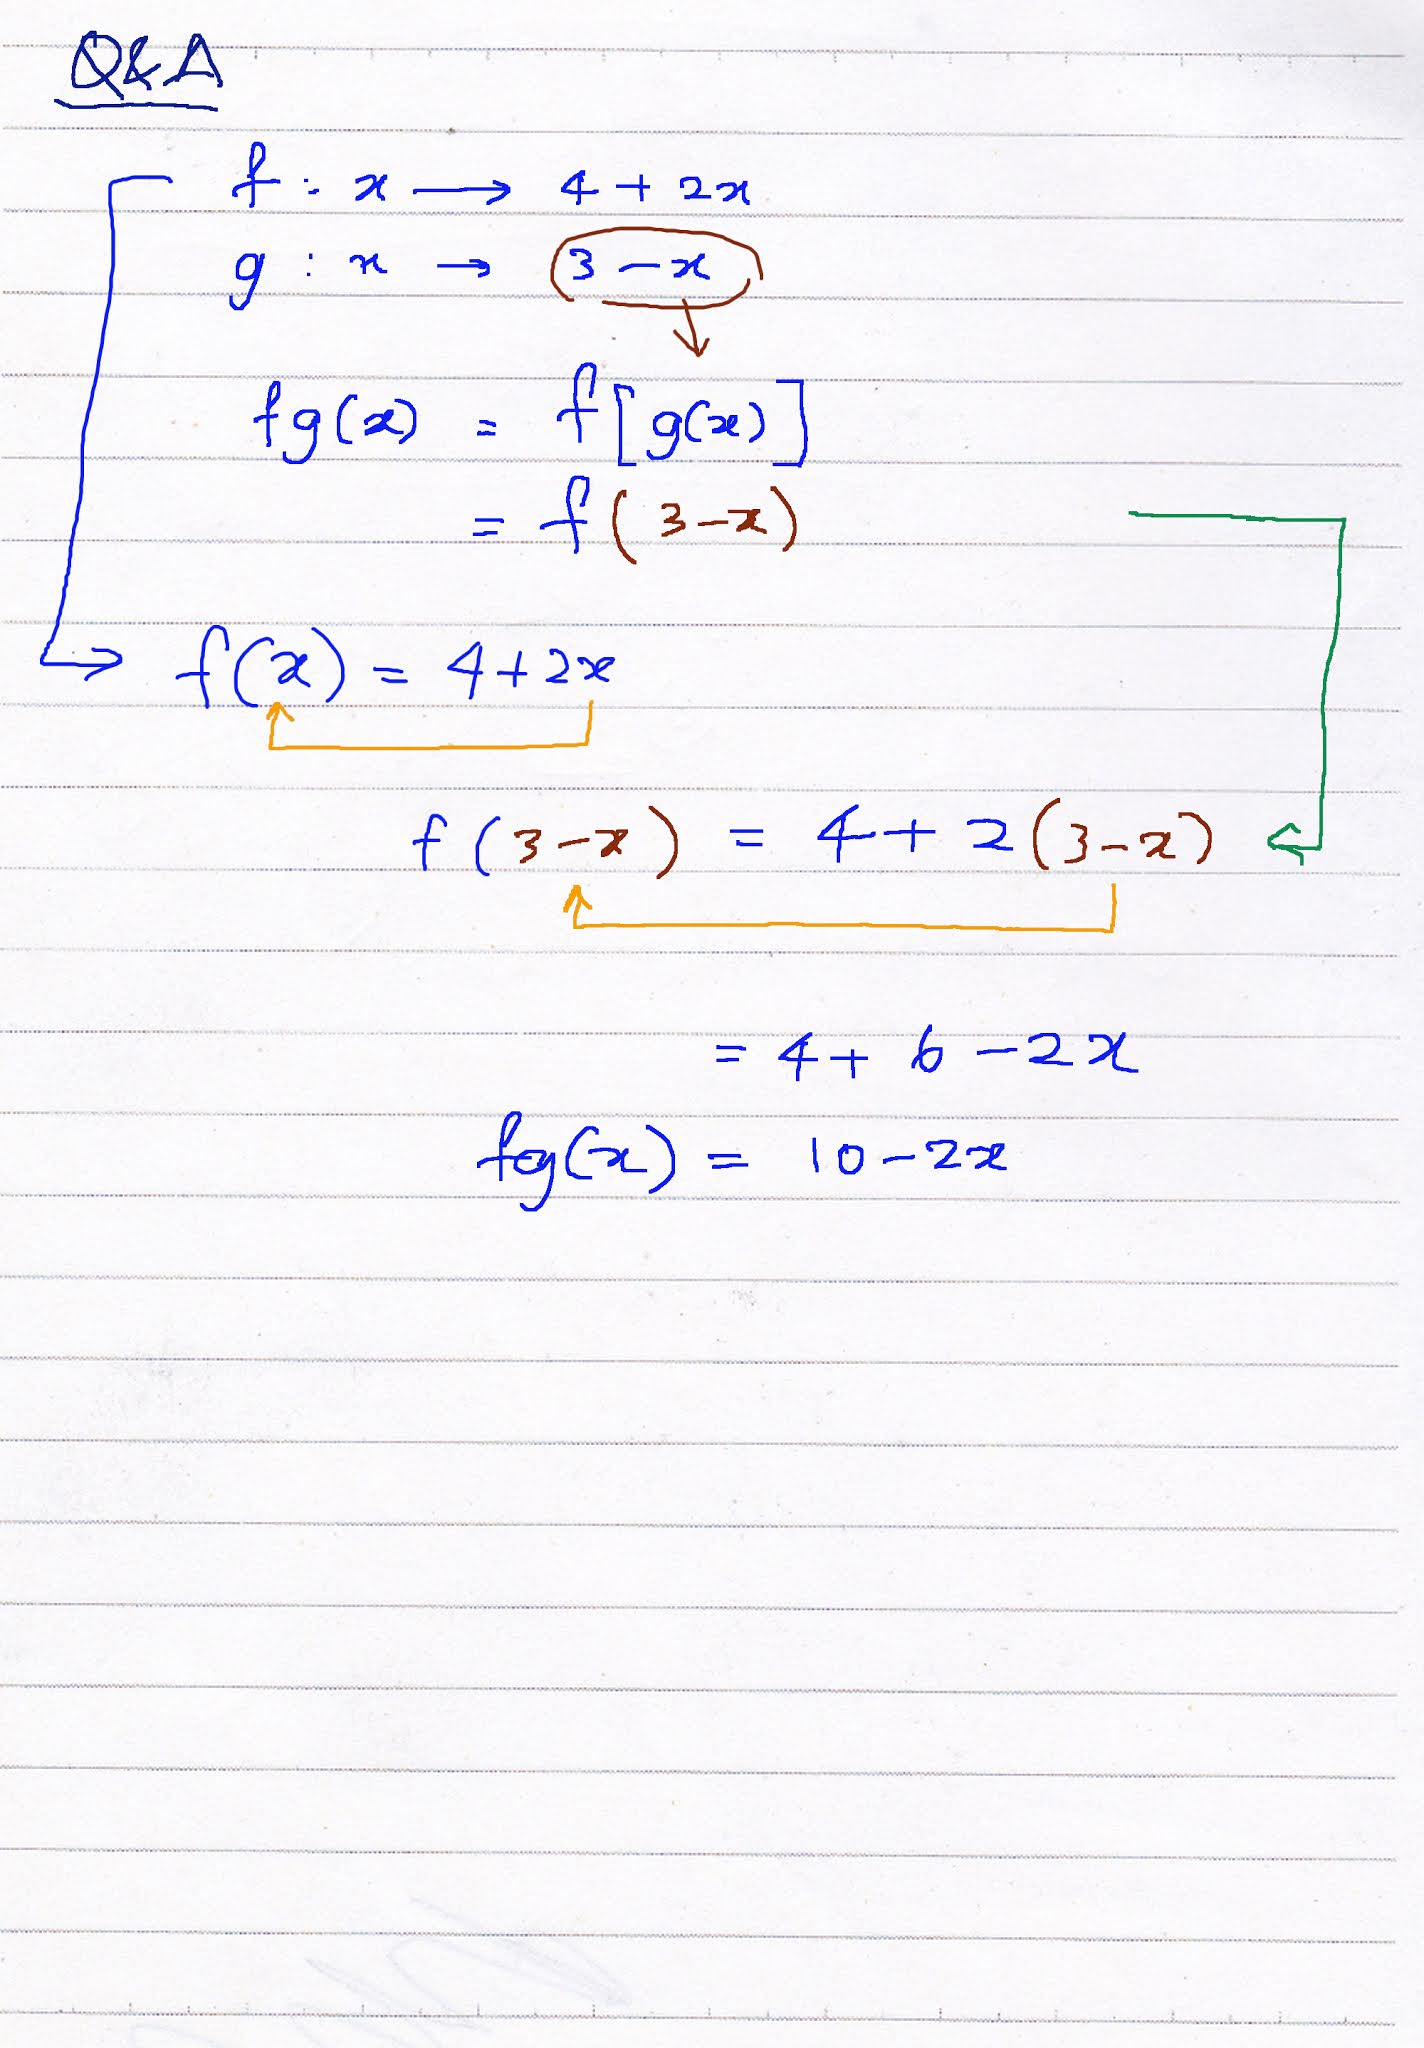 Q&A
f : x → 4 + 2x
g : x → 3 - x
fg(x) = f[g(x)]
= f(3-x)
f(x) = 4+2x
f(3-x) = 4+2(3-x)
= 4+ 6 -2x
fg(x) = 10-2x